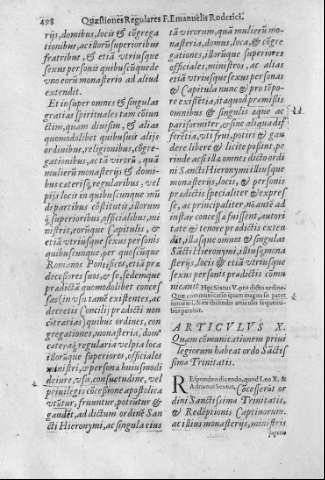 498 Quæstiones Regulares F. Emanuelis Roderici.
rijs, domibus, locis & cōgrega
tionibus, ac illorū superioribus
fratribus, & etiā vtriusque
sexus personis quibuscūque de
vno eorū monasterio ad aliud
extendit.
Et insuper omnes & singulas
gratias spirituales tam cōiun
ctim, quam diuisim, & alias
quomodolibet quibusuis alijs
ordinibus, religionibus, cōgre-
gationibus, ac tā virorū, quā
mulierū monasterijs & domi
bus cæterisq; regularibus, vel
pijs locis in quibuscunque mū
di partibus cōsistētib; illorum
q; superioribus, officialibus, mi
nistris, eorūque Capitulis, &
etiā vtriusque sexus personis
quibuscunque, per quoscūque
Romanos Pontifices, etiā præ
decessores suos, & se, sedemque
prædictā quomodolibet conces
sas (in vsu tamē existentes, ac
decretis Concilij prædicti non
cōtrarias) quibus ordines, con
gregationes, monasteria, domꝰ
cæteraq; regularia vel pia loca
illorūque superiores, officiales
ministri, & persona huiusmodi
de iure, vsu, consuetudine, vel
priuilegio, cōcessione apostolica
vtūtur, fruuntur, potiūtur &
gaudēt, ad dictum ordinē San
cti Hieronymi, ac singula eius
tā virorum, quā mulierū mo-
nasteria, domus, loca, & cōgre
gationes, illorūque superiores
officiales, ministros, ac alias
vtriusque sexus personas
& Capitula nunc & pro tēpo-
re existētia, ita quod præmissis
omnibus & singulis æque ac
pariformiter, & sine aliqua dif
ferētia, vti frui, potiri & gau
dere libere & licite possint, pe-
rinde ac si illa omnes dicto ordi
ni Sancti Hieronymi illiusque
monasterijs, locis, & personis
prædictis specialiter & expres-
se, ac principaliter, nō autē ad
instar concessa fuissent, autori
tate & tenore prædictis exten
dit, illasque omnes & singulas
Sancti Hieronymi, illiusq; mona
sterijs, locis & etiā vtriusque
sexus personis prædictis cōmu
nicauit. Hæc Sixtus V. pro dicto ordine.
Quæ communicatio quam magna sit patet
intuenti, & ex dicendis articulo sequenti-
bus patebit.
ARTICVLVS X.
Quam comunicationem priui
legiorum habeat ordo Sanctis
simæ Trinitatis.
REspondeo dicendo, quod Leo X. &
Adrianus Sextus, Cōcesserūt or
dini Sanctissimæ Trinitatis,
& Redēptionis Captiuorum,
ac illius monasterijs, ministris